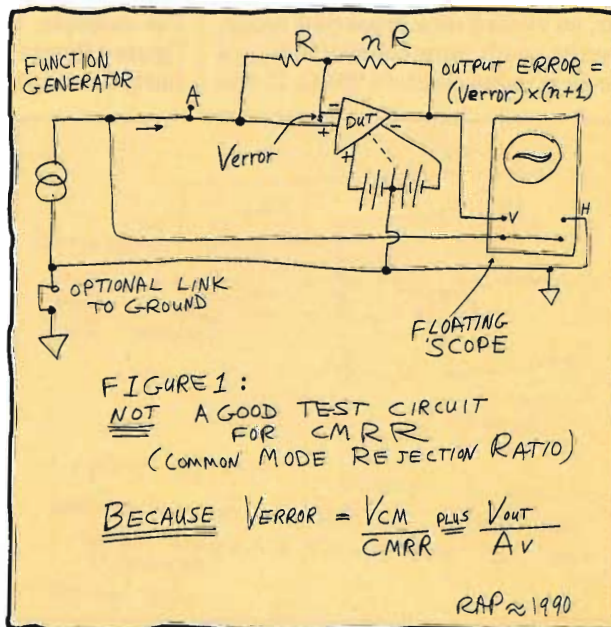 R
nR
FUNCTION
GENERATOR
OUTPUT ERROR =
(Verror)×(n+1)
A
-
+
DUT
-
+
Verror
V
H
OPTIONAL LINK
TO GROUND
FLOATING
'SCOPE
FIGURE 1:
NOT A GOOD TEST CIRCUIT
FOR CMRR
(COMMON MODE REJECTION RATIO)
BECAUSE VERROR = VCM/CMRR PLUS VOUT/AV
RAP ≈ 1990